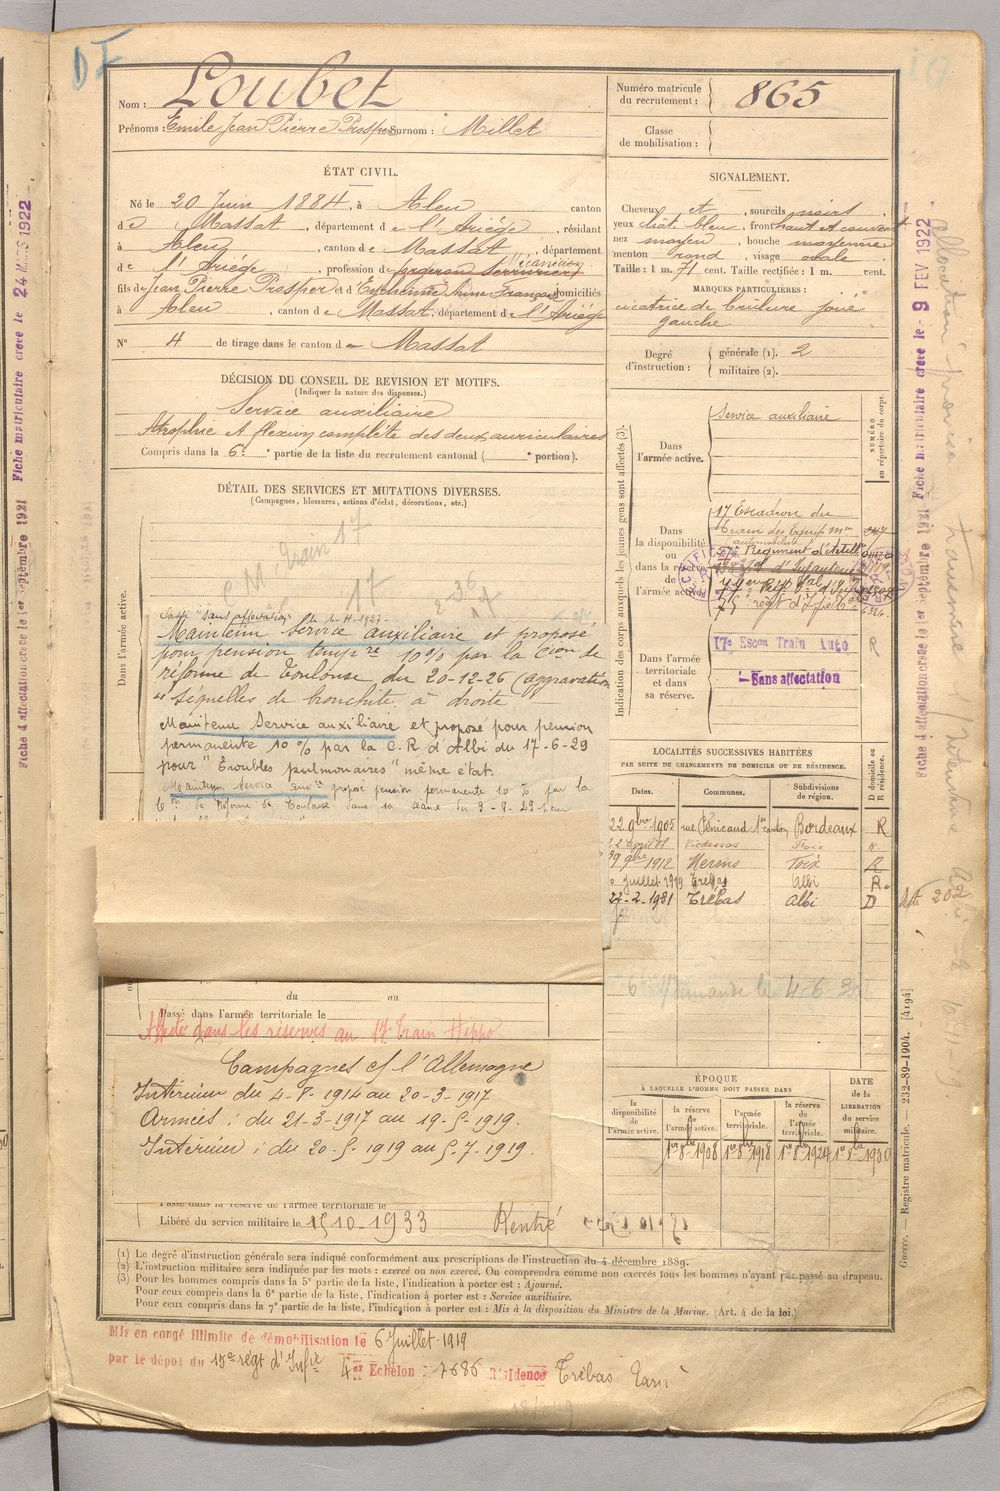 DF
Nom : Loubet
Prénoms : Emile Jean Pierre Prosper Surnom : Millet
Numéro matricule du recrutement : 865
Classe de mobilisation :
ÉTAT CIVIL.
Né le 20 Juin 1884, à Aleu canton
de Massat, département de l'Ariége, résidant
à Aleu, canton de Massat, département
de l'Ariége, profession de forgeron serrurier mécanicien
fils de Jean Pierre Prosper et d'Euchenne Anne Françoise domiciliés
à Aleu, canton de Massat, département de l'Ariége
N° 4 de tirage dans le canton de Massat
SIGNALEMENT.
Cheveux et, sourcils noirs,
yeux chat. bleu, front haut et couvert
nez moyen, bouche moyenne
menton rond, visage ovale
Taille : 1 m. 71 cent. Taille rectifiée : 1 m. cent.
MARQUES PARTICULIÈRES :
cicatrice de brûlure joue
gauche
Degré d'instruction : générale (1). 2
militaire (2).
DÉCISION DU CONSEIL DE REVISION ET MOTIFS.
(Indiquer la nature des dispenses.)
Service auxiliaire
Atrophie et flexion complète des deux auriculaires
Compris dans la 6e partie de la liste du recrutement cantonal ( e portion).
DÉTAIL DES SERVICES ET MUTATIONS DIVERSES.
(Campagnes, blessures, actions d'éclat, décorations, etc.)
Dans l'armée active.
C.M. train 17
17
Maintenu Service auxiliaire et proposé
pour pension tempre 10% par la Cion de
réforme de Toulouse du 20-12-26 (aggravation
"séquelles de bronchite à droite
Maintenu Service auxiliaire et proposé pour pension
permanente 10 % par la C.R d'Albi du 17-6-29
pour "Troubles pulmonaires" même état.
Maintenu Service auxre propose pension permanente 10 % par la
de Réforme de Toulouse dans sa séance du 9-8-29 pour
Indication des corps auxquels les jeunes gens sont affectés (3).
NUMÉRO au répertoire du corps.
Dans l'armée active.
Service auxiliaire
Dans la disponibilité ou dans la réserve de l'armée active.
17 Escadron du
train des Equip. mres
(automobiles)
Régiment d'Artillie
d'Infanterie
Dans l'armée territoriale et dans sa réserve.
17e Escon Train Auto R
Sans affectation
LOCALITÉS SUCCESSIVES HABITÉES
PAR SUITE DE CHANGEMENTS DE DOMICILE OU DE RÉSIDENCE.
Dates. Communes. Subdivisions de région. D domicile ou R résidence.
22 9bre 1905 rue Pénicaud 1er canton Bordeaux R
22 avril 08 Vicdessos Foix R
29 9bre 1912 Foix R
Juillet 1919 Trébas Albi R.
22-2-1931 Trébas Albi D
Demande le 4-6-30
du au
Passé dans l'armée territoriale le
Affecté dans les réserves au 17e Train Hippo
Campagnes c/ l'Allemagne
Intérieur du 4-8-1914 au 20-3-1917
Armées : du 21-3-1917 au 19-5-1919.
Intérieur : du 20-5-1919 au 5-7-1919.
Passé dans la réserve de l'armée territoriale le
Libéré du service militaire le 15 10-1933 Rentré
ÉPOQUE
À LAQUELLE L'HOMME DOIT PASSER DANS
la disponibilité de l'armée active. la réserve de l'armée active. l'armée territoriale. la réserve de l'armée territoriale.
DATE de la LIBÉRATION du service militaire.
1er 8bre 1908 1er 8bre 1918 1er 8bre 1924 1er 8bre 1930
(1) Le degré d'instruction générale sera indiqué conformément aux prescriptions de l'instruction du 4 décembre 1889.
(2) L'instruction militaire sera indiquée par les mots : exercé ou non exercé. On comprendra comme non exercés tous les hommes n'ayant pas passé au drapeau.
(3) Pour les hommes compris dans la 5e partie de la liste, l'indication à porter est : Ajourné.
Pour ceux compris dans la 6e partie de la liste, l'indication à porter est : Service auxiliaire.
Pour ceux compris dans la 7e partie de la liste, l'indication à porter est : Mis à la disposition du Ministre de la Marine. (Art. 4 de la loi.)
Mis en congé illimité de démobilisation le 6 Juillet 1919
par le dépôt du 15e régt d'Infie 4er Échelon 7686 Résidence Trébas Tarn
Guerre. — Registre matricule. — 232-89-1904. [4194]
Fiche d'affectation créée le 1er Septembre 1921 Fiche matriculaire créée le - 9 FEV 1922
Fiche d'affectation créée le 1er Septembre 1921 Fiche matriculaire créée le 24 MARS 1922